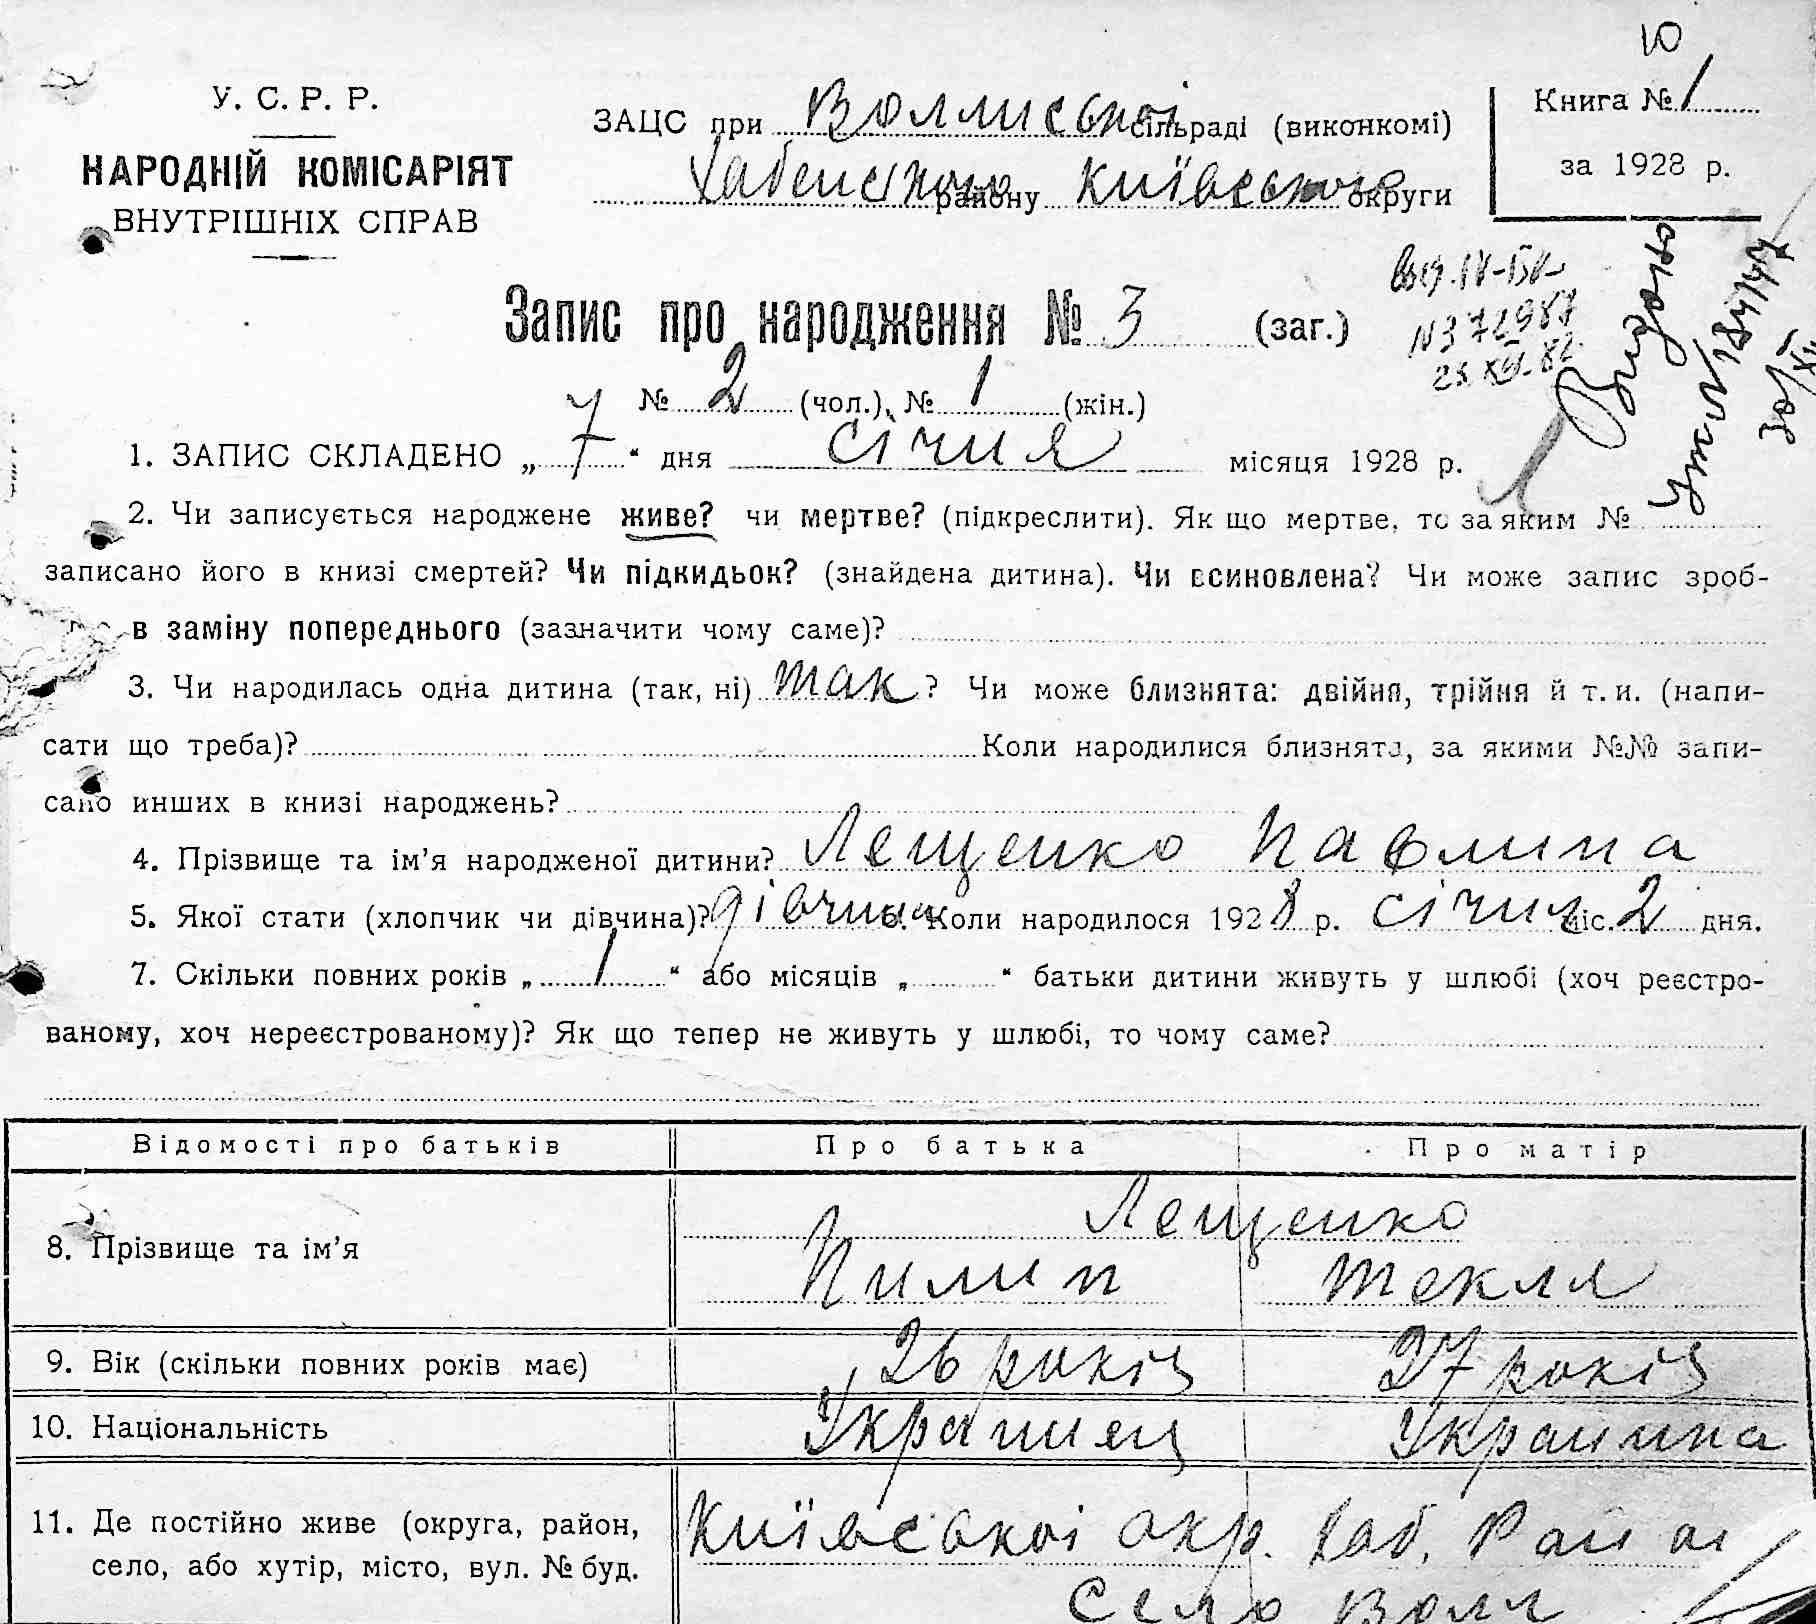 У. С. Р. Р.
НАРОДНІЙ КОМІСАРІЯТ
ВНУТРІШНІХ СПРАВ
ЗАЦС при сільраді (виконкомі)
Хабенського району Київського округи
10
Книга № 1
за 1928 р.
Запис про народження № 3 (заг.)
№ 2 (чол.), № 1 (жін.)
1. ЗАПИС СКЛАДЕНО „ 7 “ дня січня місяця 1928 р.
2. Чи записується народжене живе? чи мертве? (підкреслити). Як що мертве, то за яким №
записано його в книзі смертей? Чи підкидьок? (знайдена дитина). Чи всиновлена? Чи може запис зроб-
в заміну попереднього (зазначити чому саме)?
3. Чи народилась одна дитина (так, ні) так ? Чи може близнята: двійня, трійня й т. и. (напи-
сати що треба)? Коли народилися близнята, за якими №№ запи-
сано инших в книзі народжень?
4. Прізвище та ім’я народженої дитини? Лещенко Павлина
5. Якої стати (хлопчик чи дівчина)? дівчина 6. Коли народилося 1928 р. січня міс. 2 дня.
7. Скільки повних років „ 1 “ або місяців „ “ батьки дитини живуть у шлюбі (хоч реєстро-
ваному, хоч нереєстрованому)? Як що тепер не живуть у шлюбі, то чому саме?
Відомості про батьків Про батька Про матір
8. Прізвище та ім’я Лещенко
Пилип Текля
9. Вік (скільки повних років має) 26 років 27 років
10. Національність Украинец Украинка
11. Де постійно живе (округа, район,
село, або хутір, місто, вул. № буд.
Київської окр. Хаб. Район
Село